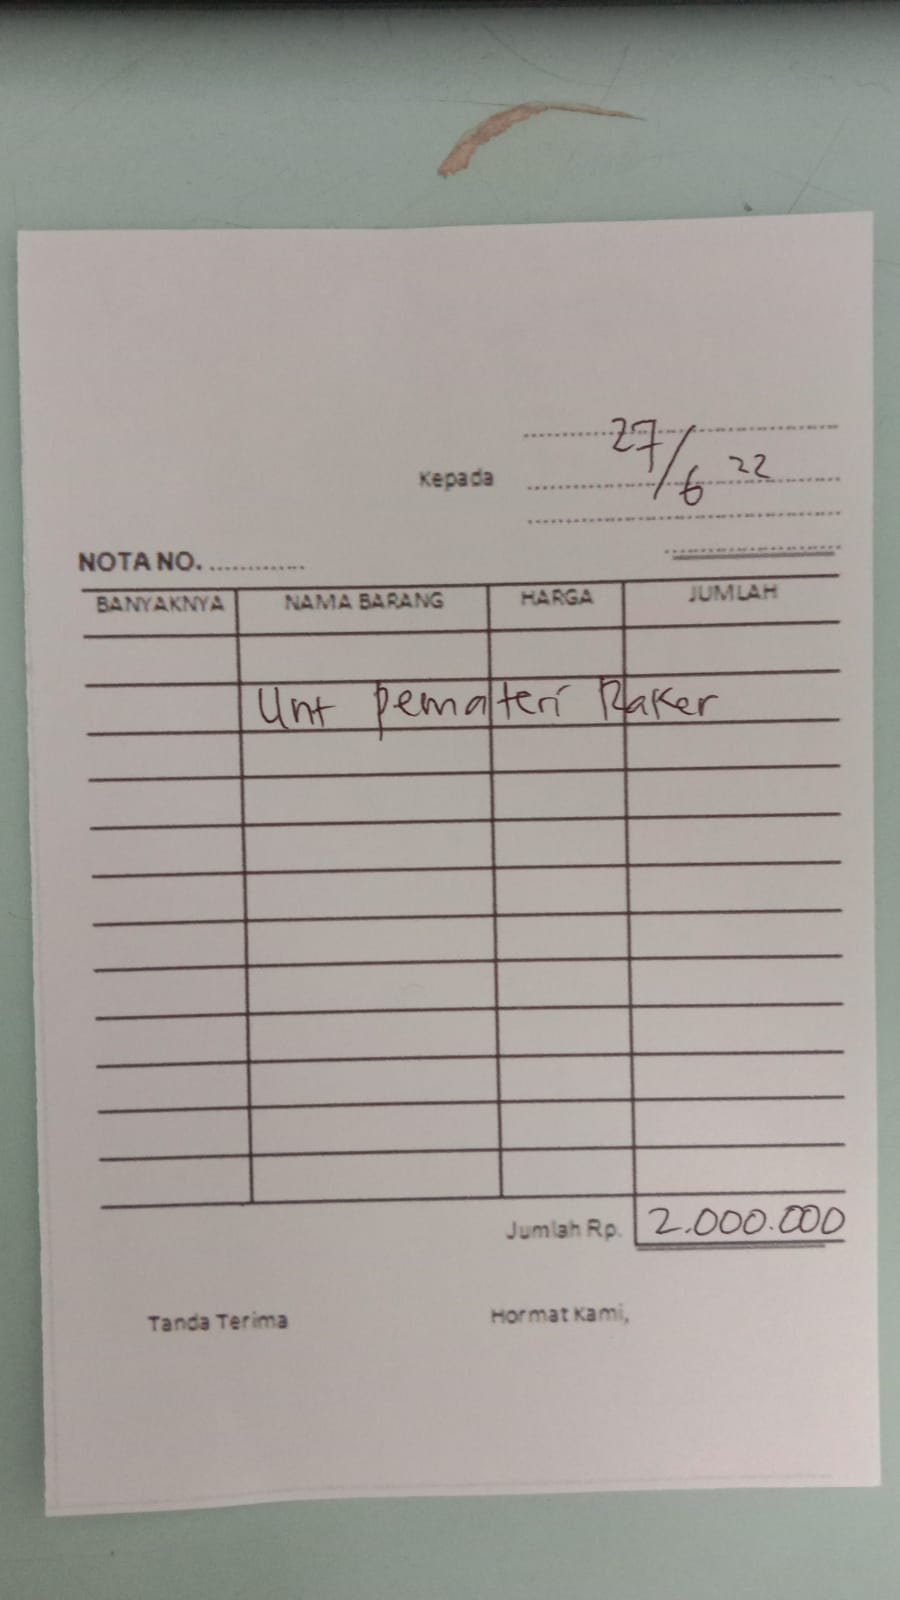 27/6 22
Kepada
NOTA NO. .............
BANYAKNYA NAMA BARANG HARGA JUMLAH
Unt Pemateri Raker
Jumlah Rp. 2.000.000
Tanda Terima Hormat Kami,